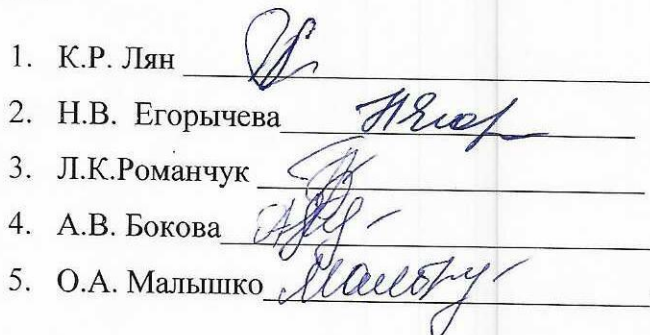 1. К.Р. Лян
2. Н.В. Егорычева
3. Л.К.Романчук
4. А.В. Бокова
5. О.А. Малышко